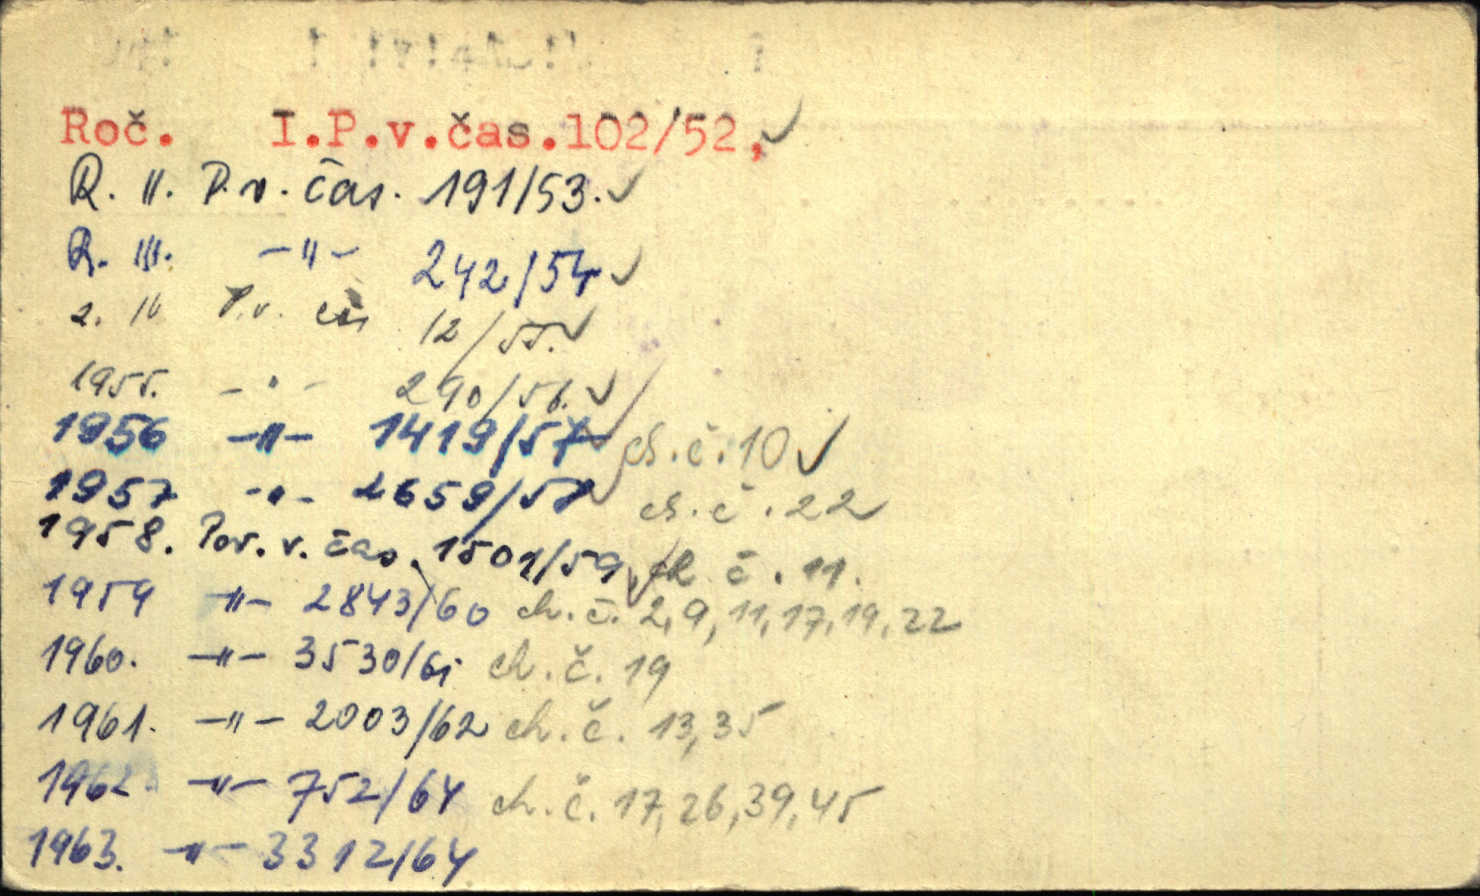 Roč. I.P.v.čas.102/52,✓
R. II. P.v. čas. 191/53.✓
R. III. -"- 242/54✓
R. IV P.v. čas 12/55.✓
1955. -"- 290/56.✓
1956 -"- 1419/57 ch.č.10✓
1957 -"- 2659/58 ch.č.22
1958. Pov.v.čas. 1501/59 ch č.11.
1959 -"- 2843/60 ch.č. 2,9,11,17,19,22
1960. -"- 3530/61 ch.č.19
1961. -"- 2003/62 ch.č. 13,35
1962 -"- 752/64 ch.č.17,26,39,45
1963. -"- 3312/64